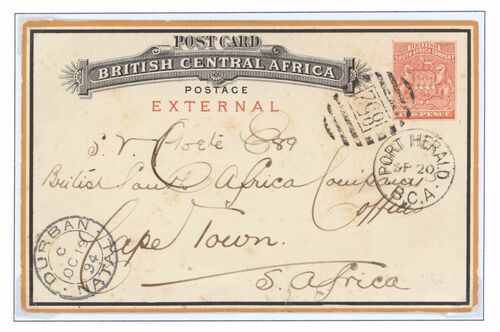 POST CARD
BRITISH CENTRAL AFRICA
POSTAGE
EXTERNAL
BRITISH
SOUTH AFRICA COMPANY
TWO PENCE
PORT HERALD
SP 20
B.C.A.
S. V. Cloeté Esq
British South Africa Company
Office
Cape Town.
S. Africa
DURBAN
C
OC 19
94
NATAL